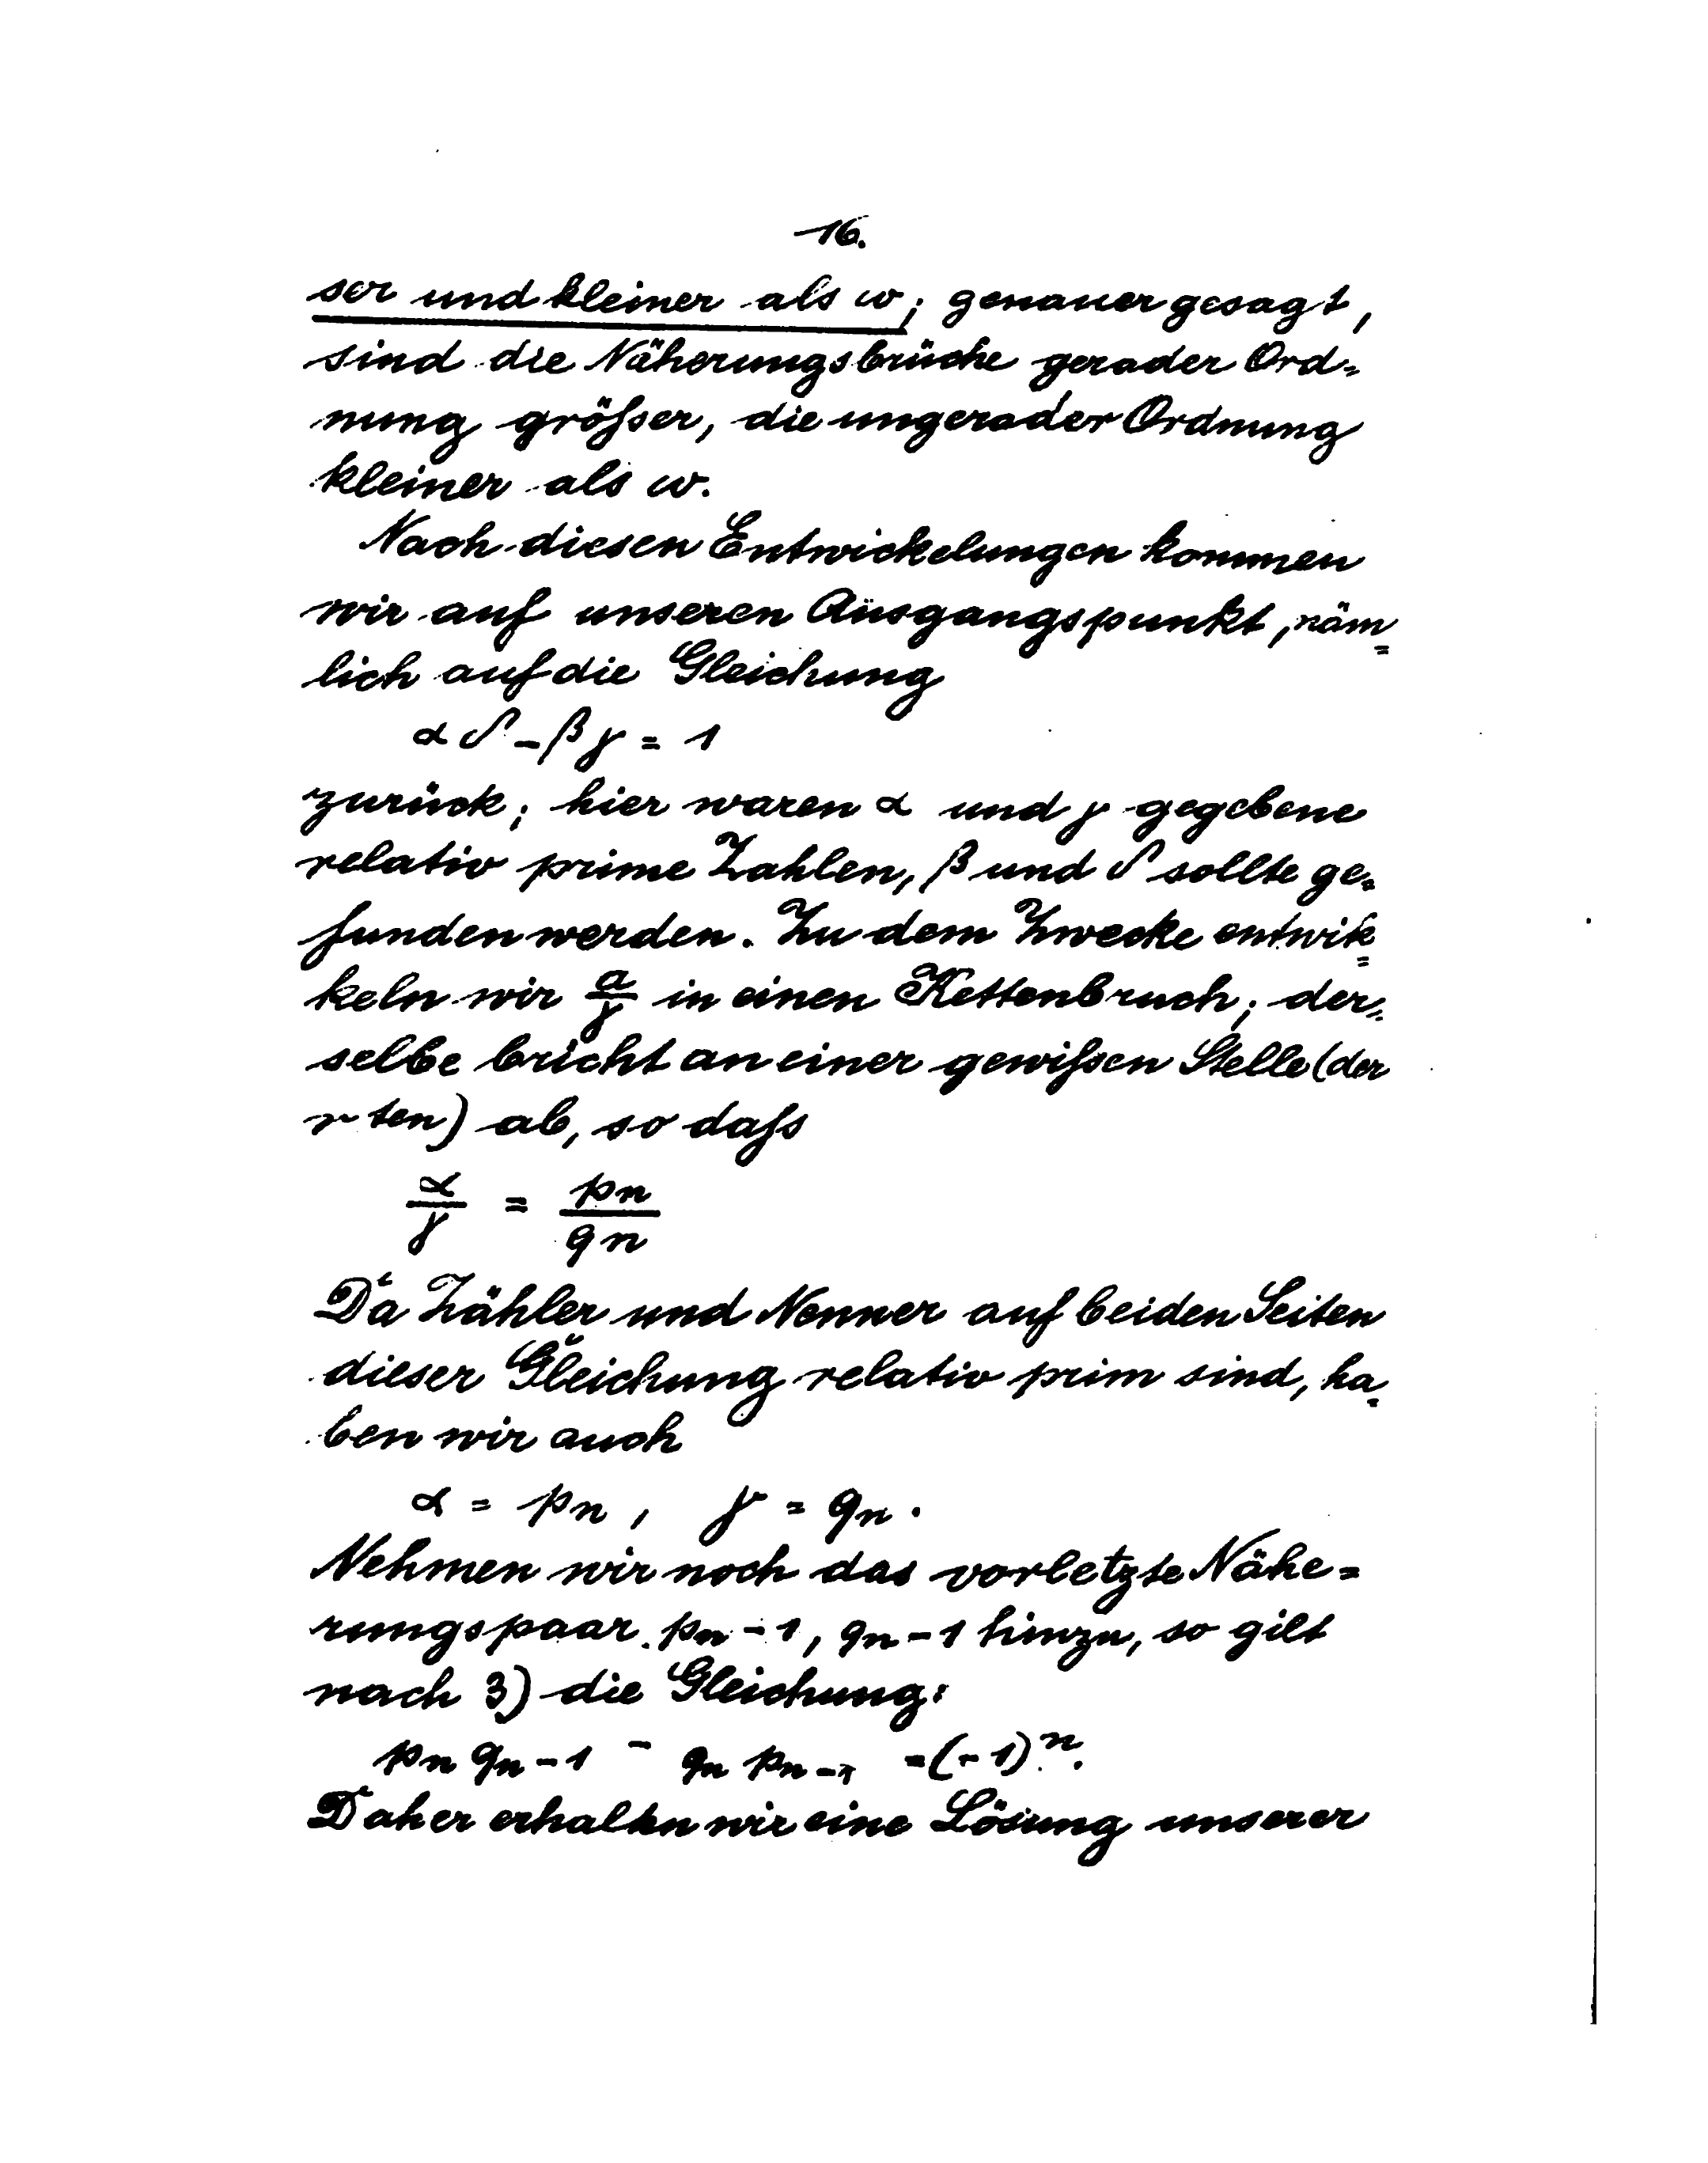 16.
ser und kleiner als w; genauer gesagt,
sind die Näherungsbrüche gerader Ord=
nung größer, die ungerader Ordnung
kleiner als w.
Nach diesen Entwickelungen kommen
wir auf unseren Ausgangspunkt, näm=
lich auf die Gleichung
αδ - βγ = 1
zurück; hier waren α und γ gegebene
relativ prime Zahlen, β und δ sollte ge=
funden werden. Zu dem Zwecke entwik=
keln wir α/γ in einen Kettenbruch; der=
selbe bricht an einer gewißen Stelle (der
n ten) ab, so daß
α/γ = pn/qn
Da Zähler und Nenner auf beiden Seiten
dieser Gleichung relativ prim sind, ha=
ben wir auch
α = pn, γ = qn.
Nehmen wir noch das vorletzte Nähe=
rungspaar pn-1, qn-1 hinzu, so gilt
nach 3) die Gleichung:
pn qn-1 - qn pn-1 = (-1)^n.
Daher erhalten wir eine Lösung unserer